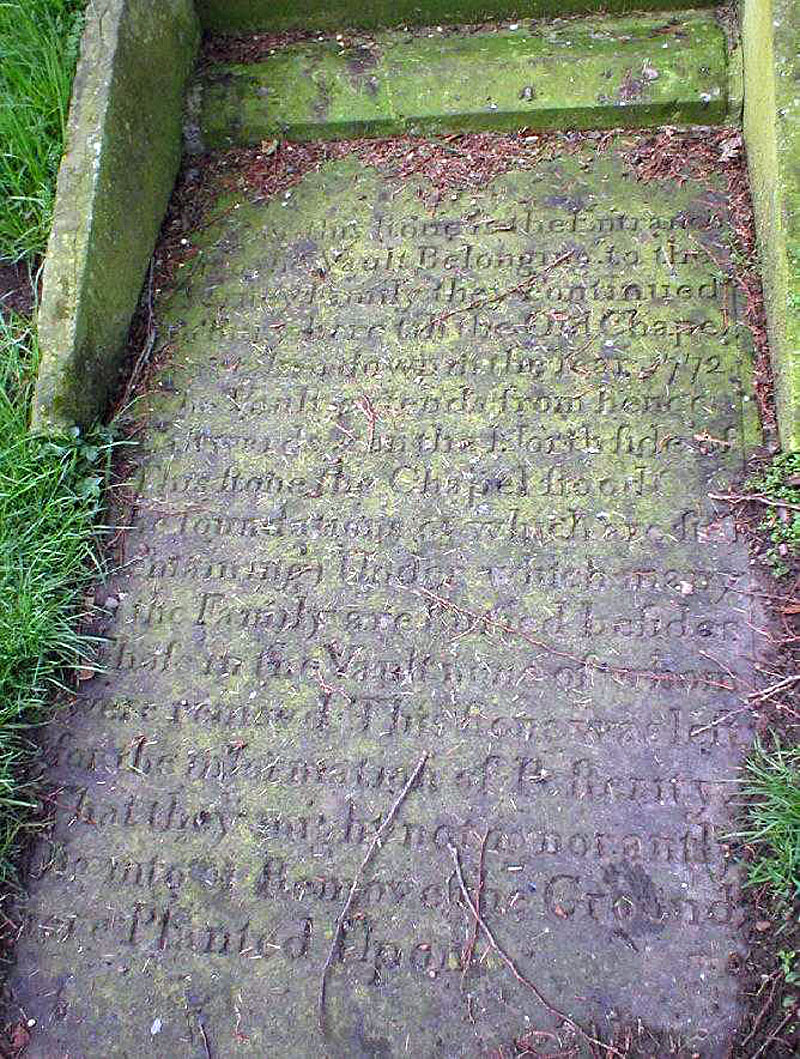 this stone is the Entrance
the Vault Belonging to the
Family they Continued
here till the Old Chapel
down in the Year 1772
The Vault extends from hence
on the North side of
This stone the Chapel stood
the foundations of which are still
Remaining Under which many
of the Family are buried besides
those in the Vault none of whom
were removed This stone was left
for the information of Posterity
that they might not ignorantly
or Remove the Ground
Planted Upon